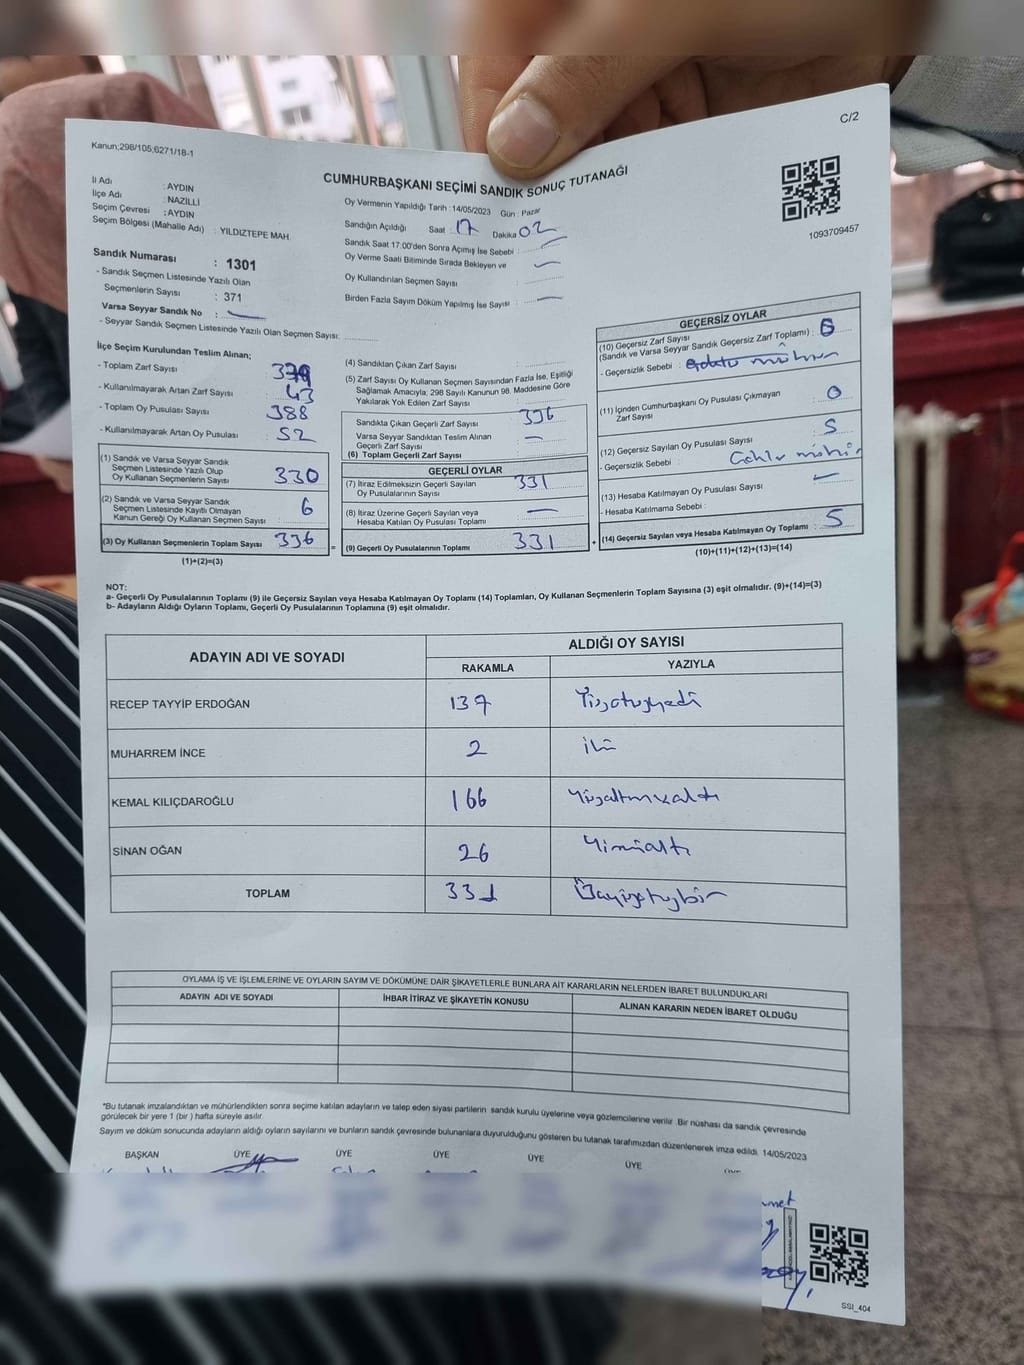 C/2
Kanun;298/105;6271/18-1
CUMHURBAŞKANI SEÇİMİ SANDIK SONUÇ TUTANAĞI
İl Adı : AYDIN
İlçe Adı : NAZİLLİ
Seçim Çevresi : AYDIN
Seçim Bölgesi (Mahalle Adı) : YILDIZTEPE MAH.
Oy Vermenin Yapıldığı Tarih :14/05/2023 Gün : Pazar
Sandığın Açıldığı Saat : 17 Dakika 02
Sandık Saat 17:00'den Sonra Açımış İse Sebebi :
Oy Verme Saati Bitiminde Sırada Bekleyen ve
Oy Kullandırılan Seçmen Sayısı :
Birden Fazla Sayım Döküm Yapılmış İse Sayısı :
1093709457
Sandık Numarası : 1301
- Sandık Seçmen Listesinde Yazılı Olan
Seçmenlerin Sayısı : 371
Varsa Seyyar Sandık No :
- Seyyar Sandık Seçmen Listesinde Yazılı Olan Seçmen Sayısı:
İlçe Seçim Kurulundan Teslim Alınan;
- Toplam Zarf Sayısı : 379
- Kullanılmayarak Artan Zarf Sayısı : 43
- Toplam Oy Pusulası Sayısı : 388
- Kullanılmayarak Artan Oy Pusulası : 52
(1) Sandık ve Varsa Seyyar Sandık
Seçmen Listesinde Yazılı Olup
Oy Kullanan Seçmenlerin Sayısı : 330
(2) Sandık ve Varsa Seyyar Sandık
Seçmen Listesinde Kayıtlı Olmayan
Kanun Gereği Oy Kullanan Seçmen Sayısı : 6
(3) Oy Kullanan Seçmenlerin Toplam Sayısı 336
(1)+(2)=(3)
=
(4) Sandıktan Çıkan Zarf Sayısı :
(5) Zarf Sayısı Oy Kullanan Seçmen Sayısından Fazla İse, Eşitliği
Sağlamak Amacıyla; 298 Sayılı Kanunun 98. Maddesine Göre
Yakılarak Yok Edilen Zarf Sayısı :
Sandıkta Çıkan Geçerli Zarf Sayısı : 336
Varsa Seyyar Sandıktan Teslim Alınan
Geçerli Zarf Sayısı :
(6) Toplam Geçerli Zarf Sayısı :
GEÇERLİ OYLAR
(7) İtiraz Edilmeksizin Geçerli Sayılan
Oy Pusulalarının Sayısı : 331
(8) İtiraz Üzerine Geçerli Sayılan veya
Hesaba Katılan Oy Pusulası Toplamı :
(9) Geçerli Oy Pusulalarının Toplamı : 331
+
GEÇERSİZ OYLAR
(10) Geçersiz Zarf Sayısı
(Sandık ve Varsa Seyyar Sandık Geçersiz Zarf Toplamı) :
- Geçersizlik Sebebi :
(11) İçinden Cumhurbaşkanı Oy Pusulası Çıkmayan
Zarf Sayısı : 0
(12) Geçersiz Sayılan Oy Pusulası Sayısı : 5
- Geçersizlik Sebebi :
(13) Hesaba Katılmayan Oy Pusulası Sayısı :
- Hesaba Katılmama Sebebi :
(14) Geçersiz Sayılan veya Hesaba Katılmayan Oy Toplamı : 5
(10)+(11)+(12)+(13)=(14)
NOT:
a- Geçerli Oy Pusulalarının Toplamı (9) ile Geçersiz Sayılan veya Hesaba Katılmayan Oy Toplamı (14) Toplamları, Oy Kullanan Seçmenlerin Toplam Sayısına (3) eşit olmalıdır. (9)+(14)=(3)
b- Adayların Aldığı Oyların Toplamı, Geçerli Oy Pusulalarının Toplamına (9) eşit olmalıdır.
ADAYIN ADI VE SOYADI
ALDIĞI OY SAYISI
RAKAMLA YAZIYLA
RECEP TAYYİP ERDOĞAN 137 Yüzotuzyedi
MUHARREM İNCE 2 iki
KEMAL KILIÇDAROĞLU 166 Yüzaltmışaltı
SİNAN OĞAN 26 Yirmialtı
TOPLAM 331 Üçyüzotuzbir
OYLAMA İŞ VE İŞLEMLERİNE VE OYLARIN SAYIM VE DÖKÜMÜNE DAİR ŞİKAYETLERLE BUNLARA AİT KARARLARIN NELERDEN İBARET BULUNDUKLARI
ADAYIN ADI VE SOYADI İHBAR İTİRAZ VE ŞİKAYETİN KONUSU ALINAN KARARIN NEDEN İBARET OLDUĞU
*Bu tutanak imzalandıktan ve mühürlendikten sonra seçime katılan adayların ve talep eden siyasi partilerin sandık kurulu üyelerine veya gözlemcilerine verilir. Bir nüshası da sandık çevresinde
görülecek bir yere 1 (bir ) hafta süreyle asılır.
Sayım ve döküm sonucunda adayların aldığı oyların sayılarını ve bunların sandık çevresinde bulunanlara duyurulduğunu gösteren bu tutanak tarafımızdan düzenlenerek imza edildi. 14/05/2023
BAŞKAN ÜYE ÜYE ÜYE ÜYE ÜYE
SSI_404